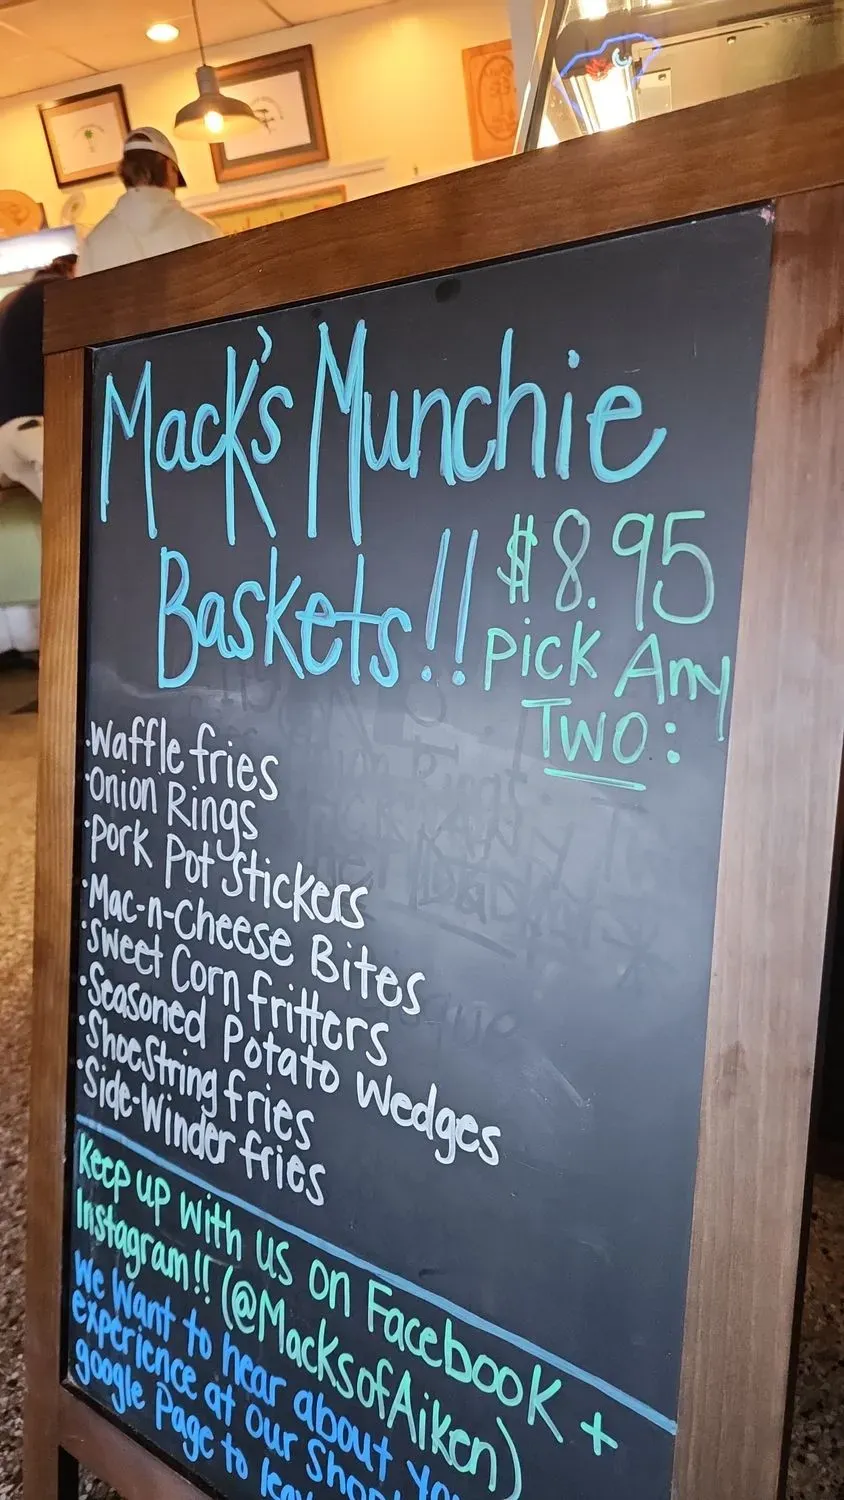 Mack's Munchie
Baskets!!
$8.95
Pick Any
Two:
·Waffle fries
·Onion Rings
·Pork Pot Stickers
·Mac-n-Cheese Bites
·Sweet Corn fritters
·Seasoned Potato Wedges
·Shoestring fries
·Side-Winder fries
Keep up with us on Facebook +
Instagram!! (@MacksofAiken)
We Want to hear about
experience at our Shop
google Page to